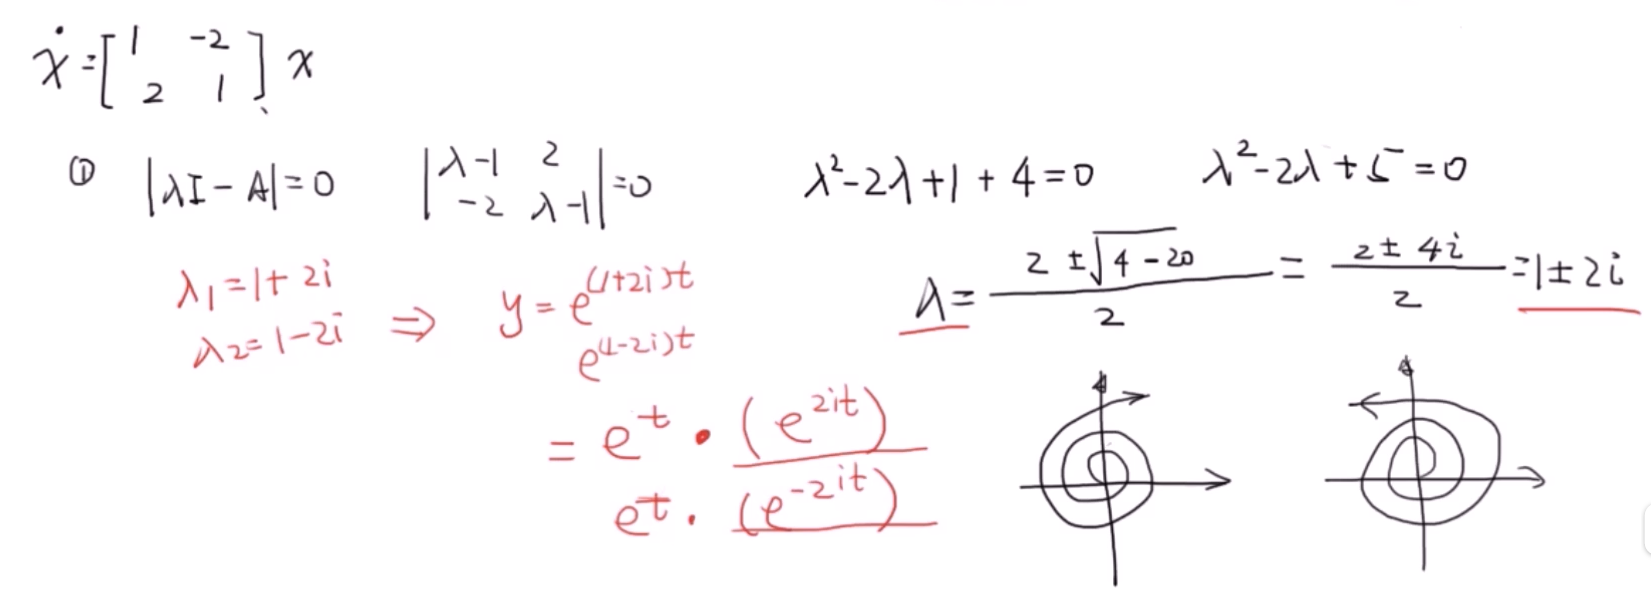 ẋ = [1 -2; 2 1] x
① |λI - A| = 0   |λ-1 2; -2 λ-1| = 0   λ²-2λ+1+4=0   λ²-2λ+5=0
λ = (2 ± √(4-20))/2 = (2 ± 4i)/2 = 1 ± 2i
λ₁ = 1+2i
λ₂ = 1-2i ⇒ y = e^(1+2i)t
e^(1-2i)t
= e^t · (e^2it)
e^t · (e^-2it)